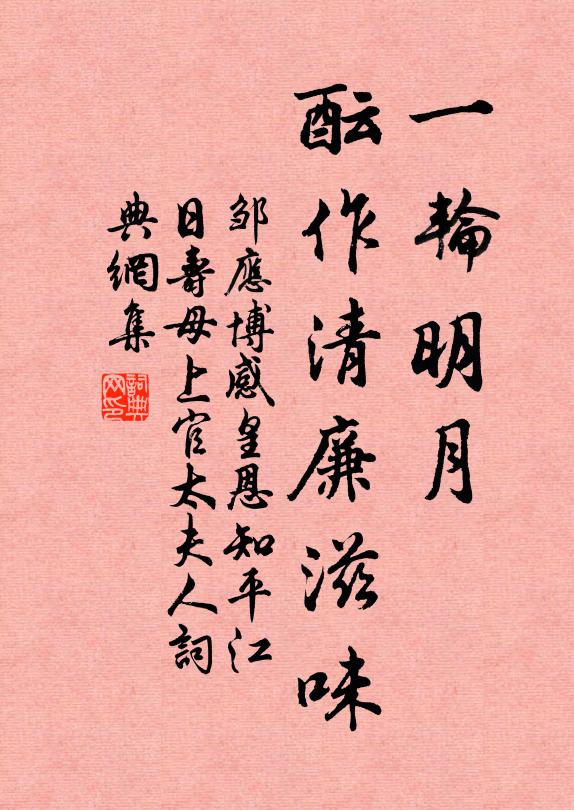 一輪明月
酝作清廉滋味
邹應博感皇恩知平江
日壽母上官太夫人詞
典網集
詞典
网印